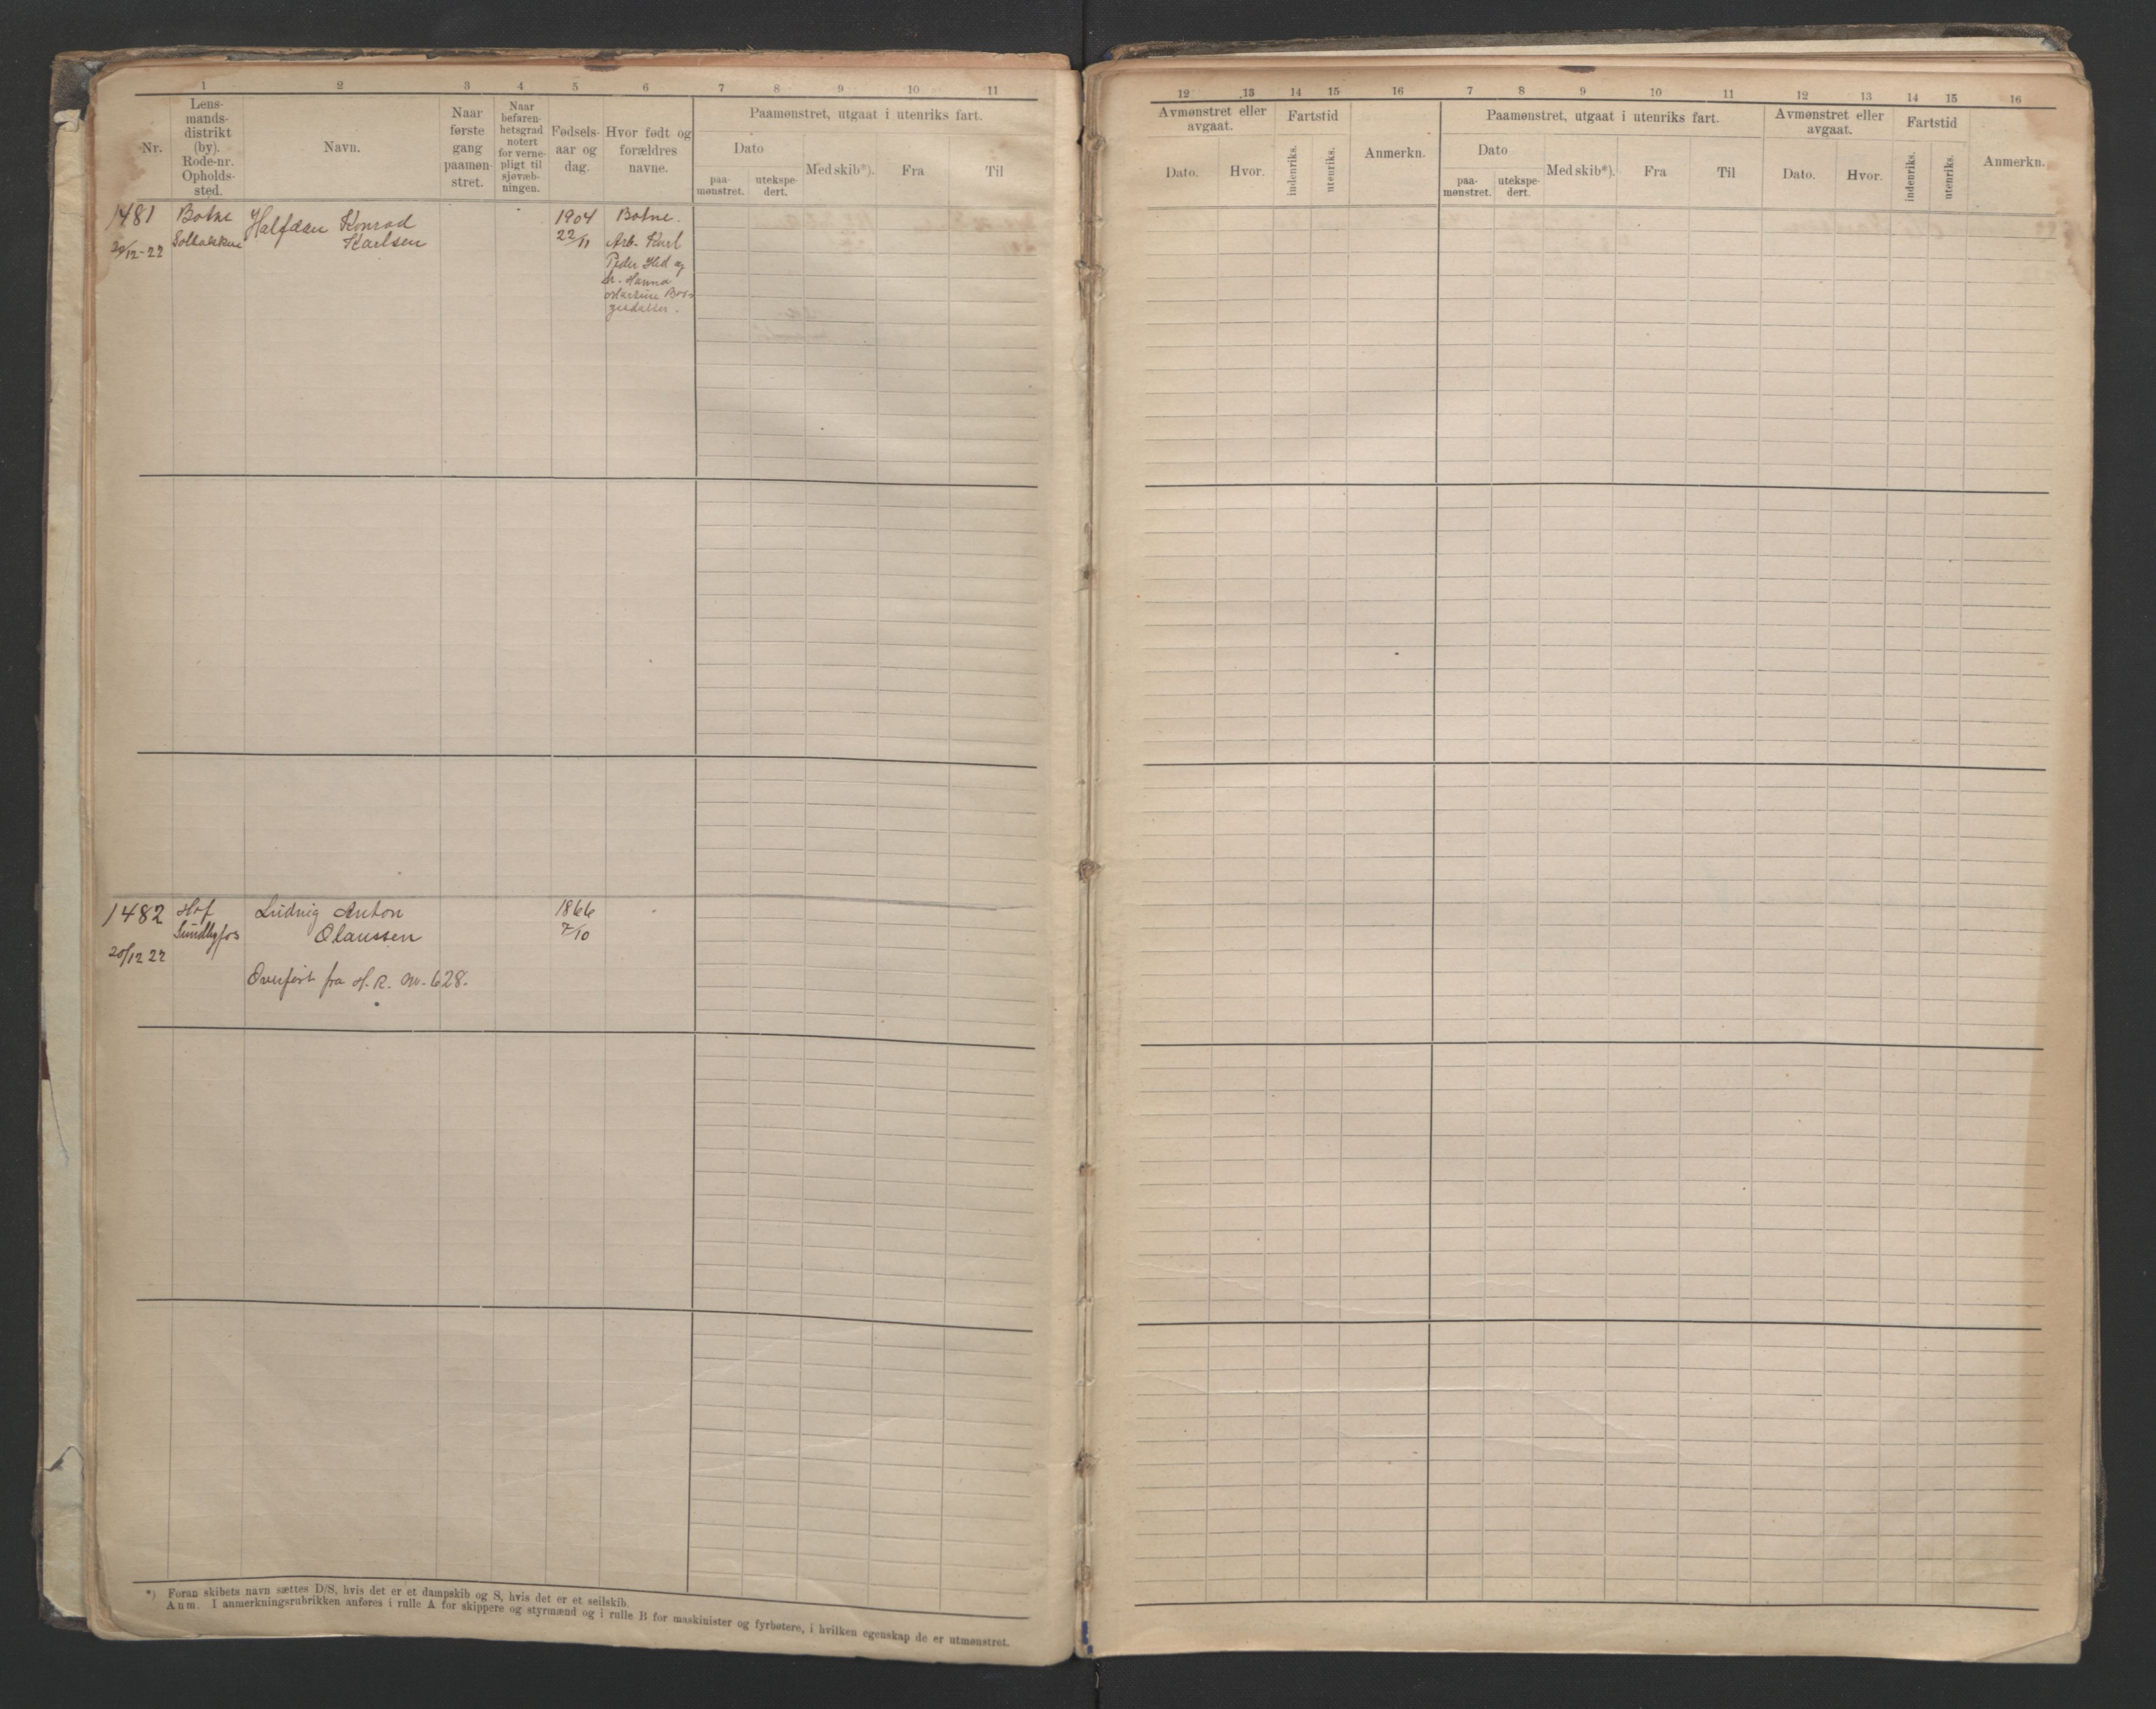 1 2 3 4 5 6 7 8 9 10 11
Nr.
Lens-
mands-
distrikt
(by).
Rode-nr.
Opholds-
sted.
Navn.
Naar
første
gang
paamøn-
stret.
Naar
befaren-
hetsgrad
notert
for verne-
pligt til
sjøvæb-
ningen.
Fødsels-
aar og
dag.
Hvor født og
forældres
navne.
Paamønstret, utgaat i utenriks fart.
Dato
paa-
mønstret.
utekspe-
dert.
Med skib*).
Fra
Til
1481
20/12-22
Botne
Halfdan Konrad
Karlsen
1904
22/11
Botne.
Arb. Karl
Peder og
Hanna
1482
20/12 22
Hof
Sundbyfos
Ludvig Anton
Olaussen
1866
7/10
Overført fra H.R. nr. 628.
*) Foran skibets navn sættes D/S, hvis det er et dampskib og S, hvis det er et seilskib.
Anm. I anmerkningsrubrikken anføres i rulle A for skippere og styrmænd og i rulle B for maskinister og fyrbøtere, i hvilken egenskap de er utmønstret.
12 13 14 15 16 7 8 9 10 11 12 13 14 15 16
Avmønstret eller
avgaat.
Dato.
Hvor.
Fartstid
indenriks.
utenriks.
Anmerkn.
Paamønstret, utgaat i utenriks fart.
Dato
paa-
mønstret.
utekspe-
dert.
Med skib*).
Fra
Til
Avmønstret eller
avgaat.
Dato.
Hvor.
Fartstid
indenriks.
utenriks.
Anmerkn.